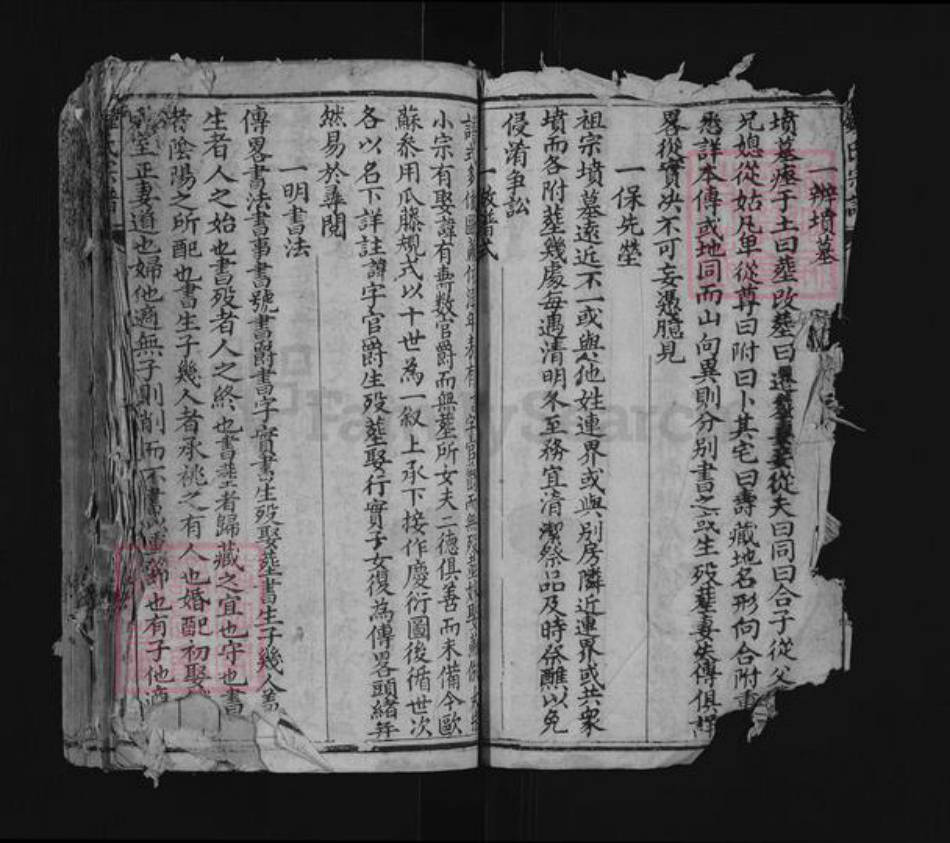 一辦墳墓
墳墓瘞于土曰塟改塟曰遷 妻從夫曰同曰合子從父
兄媳從姑凡卑從尊曰附曰卜其宅曰壽藏地名形向合附
悉詳本傳或地同而山向異則分别書之或生殁塟妻失傳俱
畧從實决不可妄憑臆見
一保先塋
祖宗墳墓遠近不一或與他姓連界或與别房隣近連界或共衆
墳而各附塟幾處每遇清明冬至務宜清潔祭品及時祭醮以免
侵淆争訟
一 譜式
小宗有娶諱有無數官爵而無塟所女夫二德俱善而未備今歐
蘇叅用瓜藤規式以十世為一叙上承下接作慶衍圖後循世次
各以名下詳註諱字官爵生殁塟娶行實子女復為傳畧頭緒井
然易於尋閱
一明書法
傳畧書法書事書號書爵書字書實書生殁娶塟書生子幾人盖
生者人之始也書殁者人之終也書塟者歸藏之宜也守也書
者陰陽之所配也書生子幾人者承祧之有人也婚配初娶
室正妻道也婦他適無子則削而不書以 節也有子他適
FamilySearch